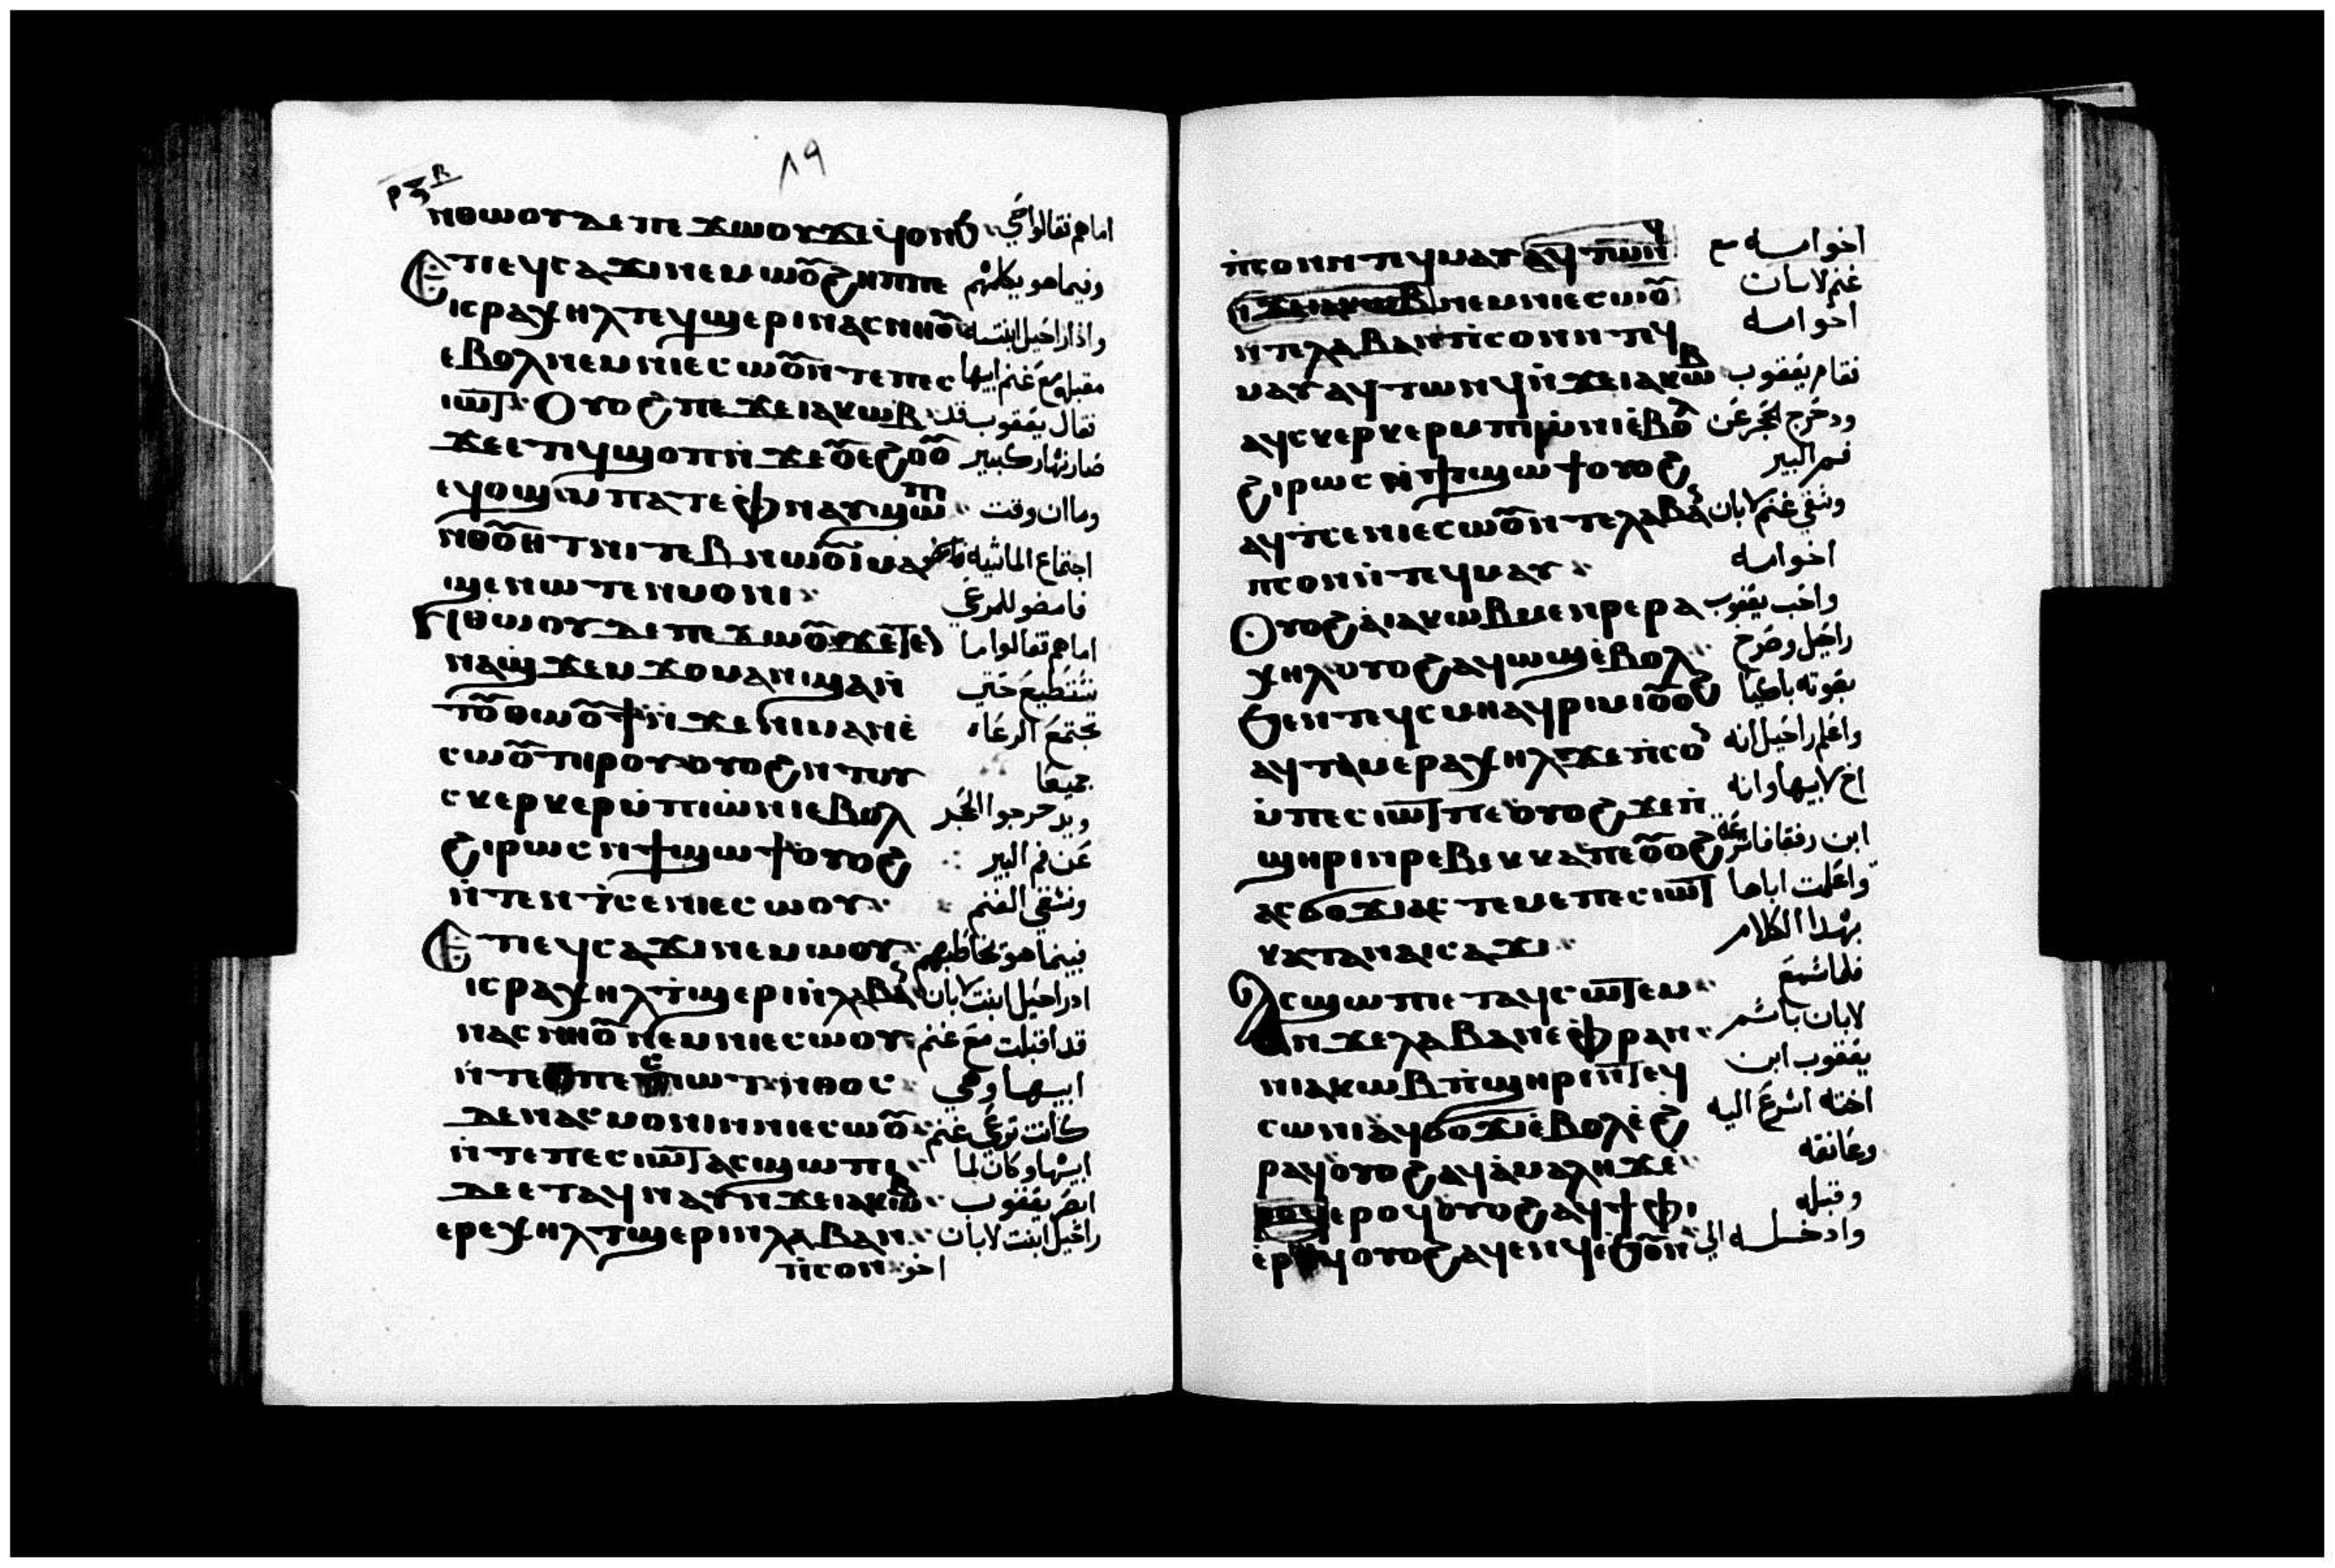 ٨٩
ⲛⲑⲱⲟⲩ ⲇⲉ ⲡⲉϫⲱⲟⲩ ϫⲉ ϥⲟⲛϧ اما هم فقالوا حي
Ⲉⲧⲓ ⲉϥⲥⲁϫⲓ ⲛⲉⲙⲱⲟ̅ ϩⲏⲡⲡⲉ وفيما هو يكلمهم
ⲓⲥ ⲣⲁⲭⲏⲗ ⲧⲉϥϣⲉⲣⲓ ⲛⲁⲥⲛⲏⲟ̅ واذا راحيل ابنته
ⲉⲃⲟⲗ ⲛⲉⲙ ⲛⲓⲉⲥⲱⲟ̅ ⲛⲧⲉ ⲡⲉⲥ مقبله مع غنم ابيها
ⲓⲱ̅ⲧ Ⲟⲩⲟϩ ⲡⲉϫⲉ ⲓⲁⲕⲱⲃ فقال يعقوب قد
ϫⲉ ⲉⲧⲓ ϥϣⲟⲡ ⲛ̇ϫⲉ ⲟ̅ⲉϩⲟⲟ̅ صار نهار كبير
ⲉϥⲟϣ ⲙ̇ⲡⲁⲧⲉ ⲫⲛⲁⲩ ϣⲱⲡ وما ان وقت
ⲛⲑⲟ̅ⲏⲧ ⲛⲓⲧⲉⲃⲛⲱⲟ̅ⲓ̇ ⲙⲁ اجتماع الماشيه
ϣⲉⲛⲱⲧⲉⲛ ⲙⲟⲛⲓ فامضو للمرعي
Ⲛⲑⲱⲟⲩ ⲇⲉ ⲡⲉϫⲱⲟ̅ ϫⲉ اما هم فقالوا ما
ⲛⲁϣϫⲉⲙϫⲟⲙ ⲁⲛ ϣⲁⲛ̇ نستطيع حتي
ⲧⲟ̅ⲑⲱⲟ̅ϯ ⲛ̇ϫⲉ ⲛⲓⲙⲁⲛⲉ̇ تجتمع الرعاه
ⲥⲱⲟ̅ ⲧⲏⲣⲟⲩ ⲟⲩⲟϩ ⲛⲧⲟⲩ جميعا
ⲥⲕⲉⲣⲕⲉⲣ ⲙ̇ⲡⲓⲱⲛⲓ ⲉⲃⲟⲗ ويدحرجوا الحجر
ϩⲓⲣⲱⲥ ⲛϯϣⲱϯ ⲟⲩⲟϩ عن فم البير
ⲛ̇ⲧⲉⲛⲧⲥⲉ ⲛⲓⲉⲥⲱⲟⲩ ونسقي الغنم
Ⲉⲧⲓ ⲉϥⲥⲁϫⲓ ⲛⲉⲙⲱⲟⲩ فبينما هو يخاطبهم
ⲓⲥ ⲣⲁⲭⲏⲗ ⲧϣⲉⲣⲓ ⲛ̇ⲗⲁⲃⲁⲛ اذ راحيل ابنت لابان
ⲛⲁⲥⲛⲏⲟ̅ ⲛⲉⲙ ⲛⲓⲉⲥⲱⲟⲩ قد اقبلت مع غنم
ⲛ̇ⲧⲉ ⲡⲉⲥⲓⲱⲧ ⲛⲑⲟⲥ ابيها وهي
ⲇⲉ ⲛⲁⲥⲙⲟⲛⲓ ⲛⲛⲓⲉⲥⲱⲟ̅ كانت ترعي غنم
ⲛ̇ⲧⲉ ⲡⲉⲥⲓⲱ̅ⲧ ⲁⲥϣⲱⲡⲓ ابيها وكان لما
ⲇⲉ ⲉⲧⲁϥⲛⲁⲩ ⲛϫⲉ ⲓⲁⲕⲱⲃ ابصر يعقوب
ⲉⲣⲉⲭⲏⲗ ⲧϣⲉⲣⲓ ⲛⲗⲁⲃⲁⲛ راحيل ابنت لابان
ⲡⲥⲟⲛ اخو
ⲡⲥⲟⲛ ⲛⲧⲉϥⲙⲁⲩ ⲁϥⲧⲱⲛϥ اخو امه مع
ⲛ̇ϫⲉ ⲓⲁⲕⲱⲃ ⲛⲉⲙ ⲛⲓⲉⲥⲱⲟ̅ غنم لابان
ⲛⲧⲉ ⲗⲁⲃⲁⲛ ⲡⲥⲟⲛ ⲛⲧⲉϥ اخو امه
ⲙⲁⲩ ⲁϥⲧⲱⲛϥ ⲛ̇ϫⲉ ⲓⲁⲕⲱⲃ فقام يعقوب
ⲁϥⲥⲕⲉⲣⲕⲉⲣ ⲙⲡⲓⲱⲛⲓ ⲉ̇ⲃⲟⲗ ودحرج الحجر عن
ϩⲓⲣⲱⲥ ⲛ̇ϯϣⲱϯ ⲟⲩⲟϩ فم البير
ⲁϥⲧⲥⲉ ⲛⲓⲉⲥⲱⲟ̅ ⲛⲧⲉ ⲗⲁⲃⲁⲛ وسقي غنم لابان
ⲡⲥⲟⲛ ⲛ̇ⲧⲉϥⲙⲁⲩ اخو امه
Ⲟⲩⲟϩ ⲁ̇ ⲓⲁⲕⲱⲃ ⲙⲉⲛⲣⲉ ⲣⲁ واحب يعقوب
ⲭⲏⲗ ⲟⲩⲟϩ ⲁϥⲱϣ ⲉ̇ⲃⲟⲗ راحيل وصرح
ϧⲉⲛ ⲧⲉϥⲥⲙⲏ ⲁϥⲣⲓⲙⲓ ⲟ̅ⲟϩ بصوته باكيا
ⲁϥⲧⲁⲙⲉ ⲣⲁⲭⲏⲗ ϫⲉ ⲡⲥⲟⲛ واعلم راحيل انه
ⲙ̇ⲡⲉⲥⲓⲱ̅ⲧ ⲡⲉ ⲟⲩⲟϩ ϫⲉ ⲡ̇ اخ لابيها وانه
ϣⲏⲣⲓ ⲛⲣⲉⲃⲉⲕⲕⲁ ⲡⲉ ⲟ̅ⲟϩ ابن رفقا فاسرعه
ⲁⲥϭⲟϫⲓ ⲁⲥⲧⲉⲙⲉ ⲡⲉⲥⲓⲱ̅ⲧ واعلمت اباها
ⲕⲁⲧⲁ ⲛⲁⲓⲥⲁϫⲓ بهدا الكلام
Ⲁⲥϣⲱⲡⲓ ⲉⲧⲁϥⲥⲱ̅ⲧⲉⲙ فلما سمع
ⲛϫⲉ ⲗⲁⲃⲁⲛ ⲉⲫⲣⲁⲛ لابان باسم
ⲛⲓⲁⲕⲱⲃ ⲡ̇ϣⲏⲣⲓ ⲛ̅ⲧⲉϥ يعقوب ابن
ⲥⲱⲛⲓ ⲁϥϭⲟϫⲓ ⲉ̇ⲃⲟⲗ ⲉ̇ϩ اخته اسرع اليه
ⲣⲁϥ ⲟⲩⲟϩ ⲁϥⲁ̇ⲙⲁⲗⲏϫⲉ̇ وعانقه
ⲉⲣⲟϥ ⲟⲩⲟϩ ⲁϥϯⲫⲓ وقبله
ⲉ̇ⲣⲱϥ ⲟⲩⲟϩ ⲁϥⲉⲛϥ ⲉ̇ϧⲟ̅ⲛ وادخله الي